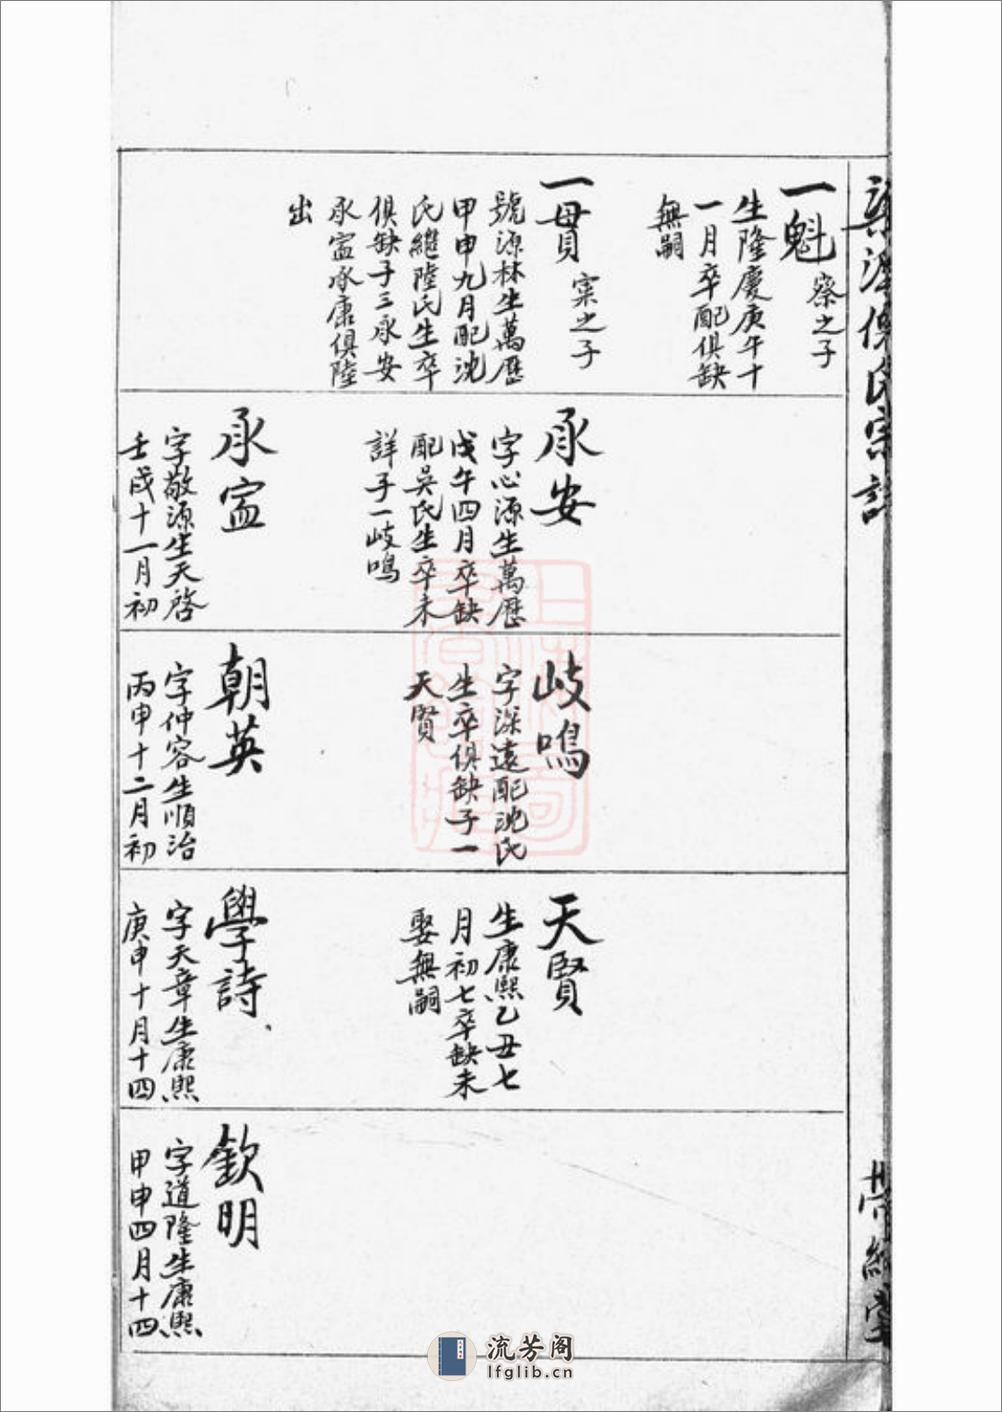 氏宗譜
一魁
寀之子
生隆慶庚午十
一月卒配俱缺
無嗣
一貫
寀之子
號源林生萬歷
甲申九月配沈
氏繼陸氏生卒
俱缺子三承安
承寍承康俱陸
出
承安
字心源生萬歷
戊午四月卒缺
配吳氏生卒未
詳子一岐鳴
承寍
字敬源生天啓
壬戌十一月初
岐鳴
字深遠配沈氏
生卒俱缺子一
天賢
朝英
字仲容生順治
丙申十二月初
天賢
生康熙乙丑七
月初七卒缺未
娶無嗣
學詩
字天章生康熙
庚申十月十四
欽明
字道隆生康熙
甲申四月十四
流芳阁
lfglib.cn